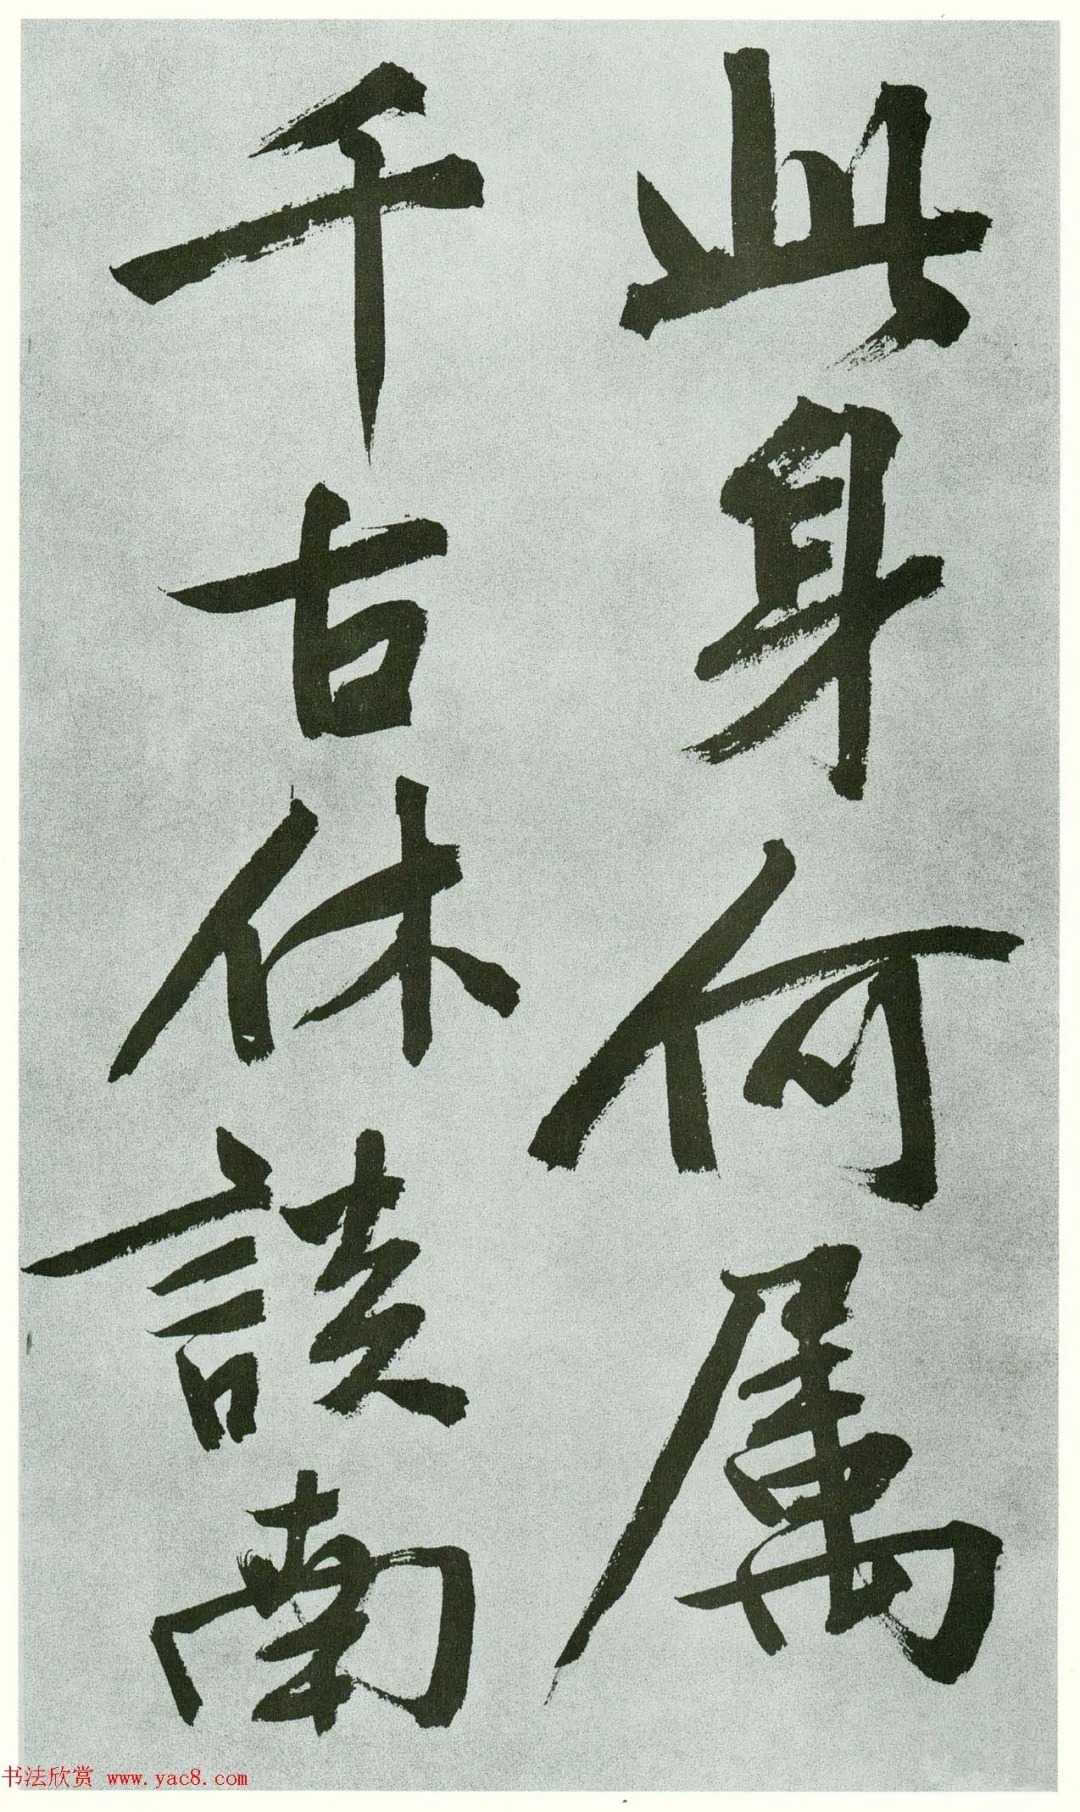 此身何属
千古休談南
书法欣赏 www.yac8.com